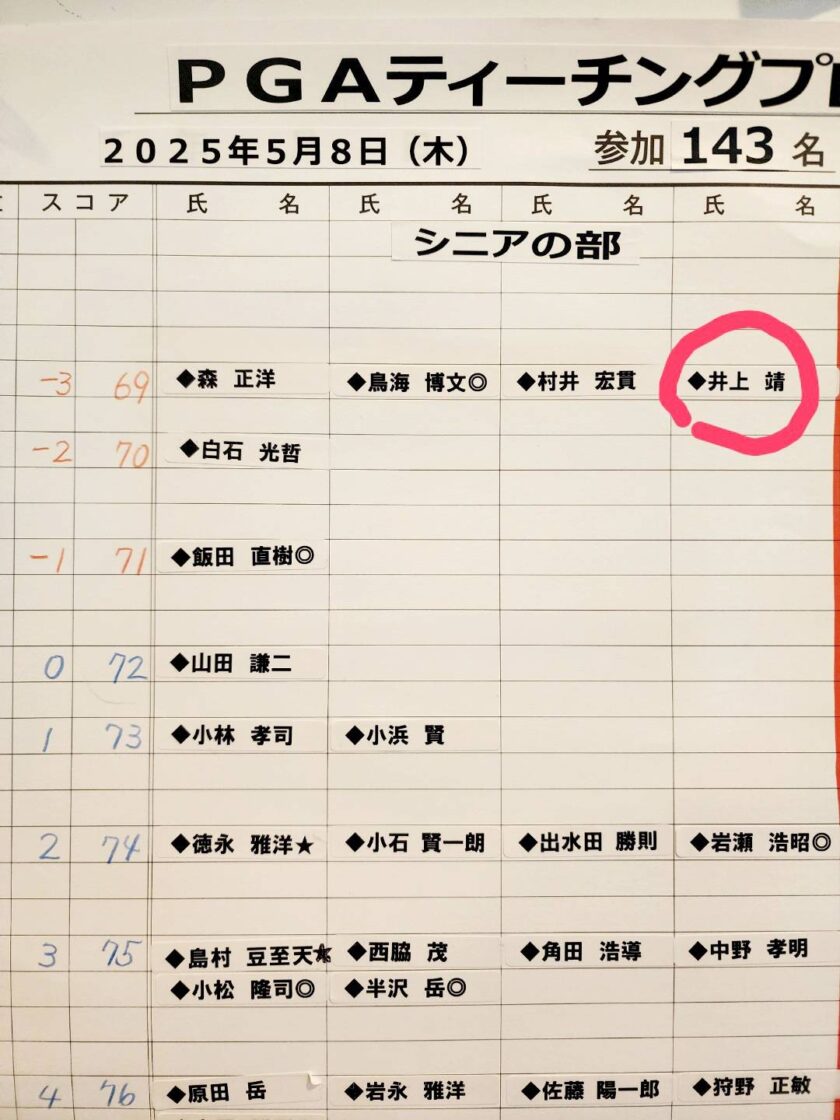 PGAティーチングプ
2025年5月8日(木) 参加 143 名
スコア 氏 名 氏 名 氏 名 氏 名
シニアの部
-3 69 ◆森 正洋 ◆鳥海 博文◎ ◆村井 宏貫 ◆井上 靖
-2 70 ◆白石 光哲
-1 71 ◆飯田 直樹◎
0 72 ◆山田 謙二
1 73 ◆小林 孝司 ◆小浜 賢
2 74 ◆徳永 雅洋★ ◆小石 賢一朗 ◆出水田 勝則 ◆岩瀬 浩昭◎
3 75 ◆島村 豆至天★ ◆西脇 茂 ◆角田 浩導 ◆中野 孝明
◆小松 隆司◎ ◆半沢 岳◎
4 76 ◆原田 岳 ◆岩永 雅洋 ◆佐藤 陽一郎 ◆狩野 正敏